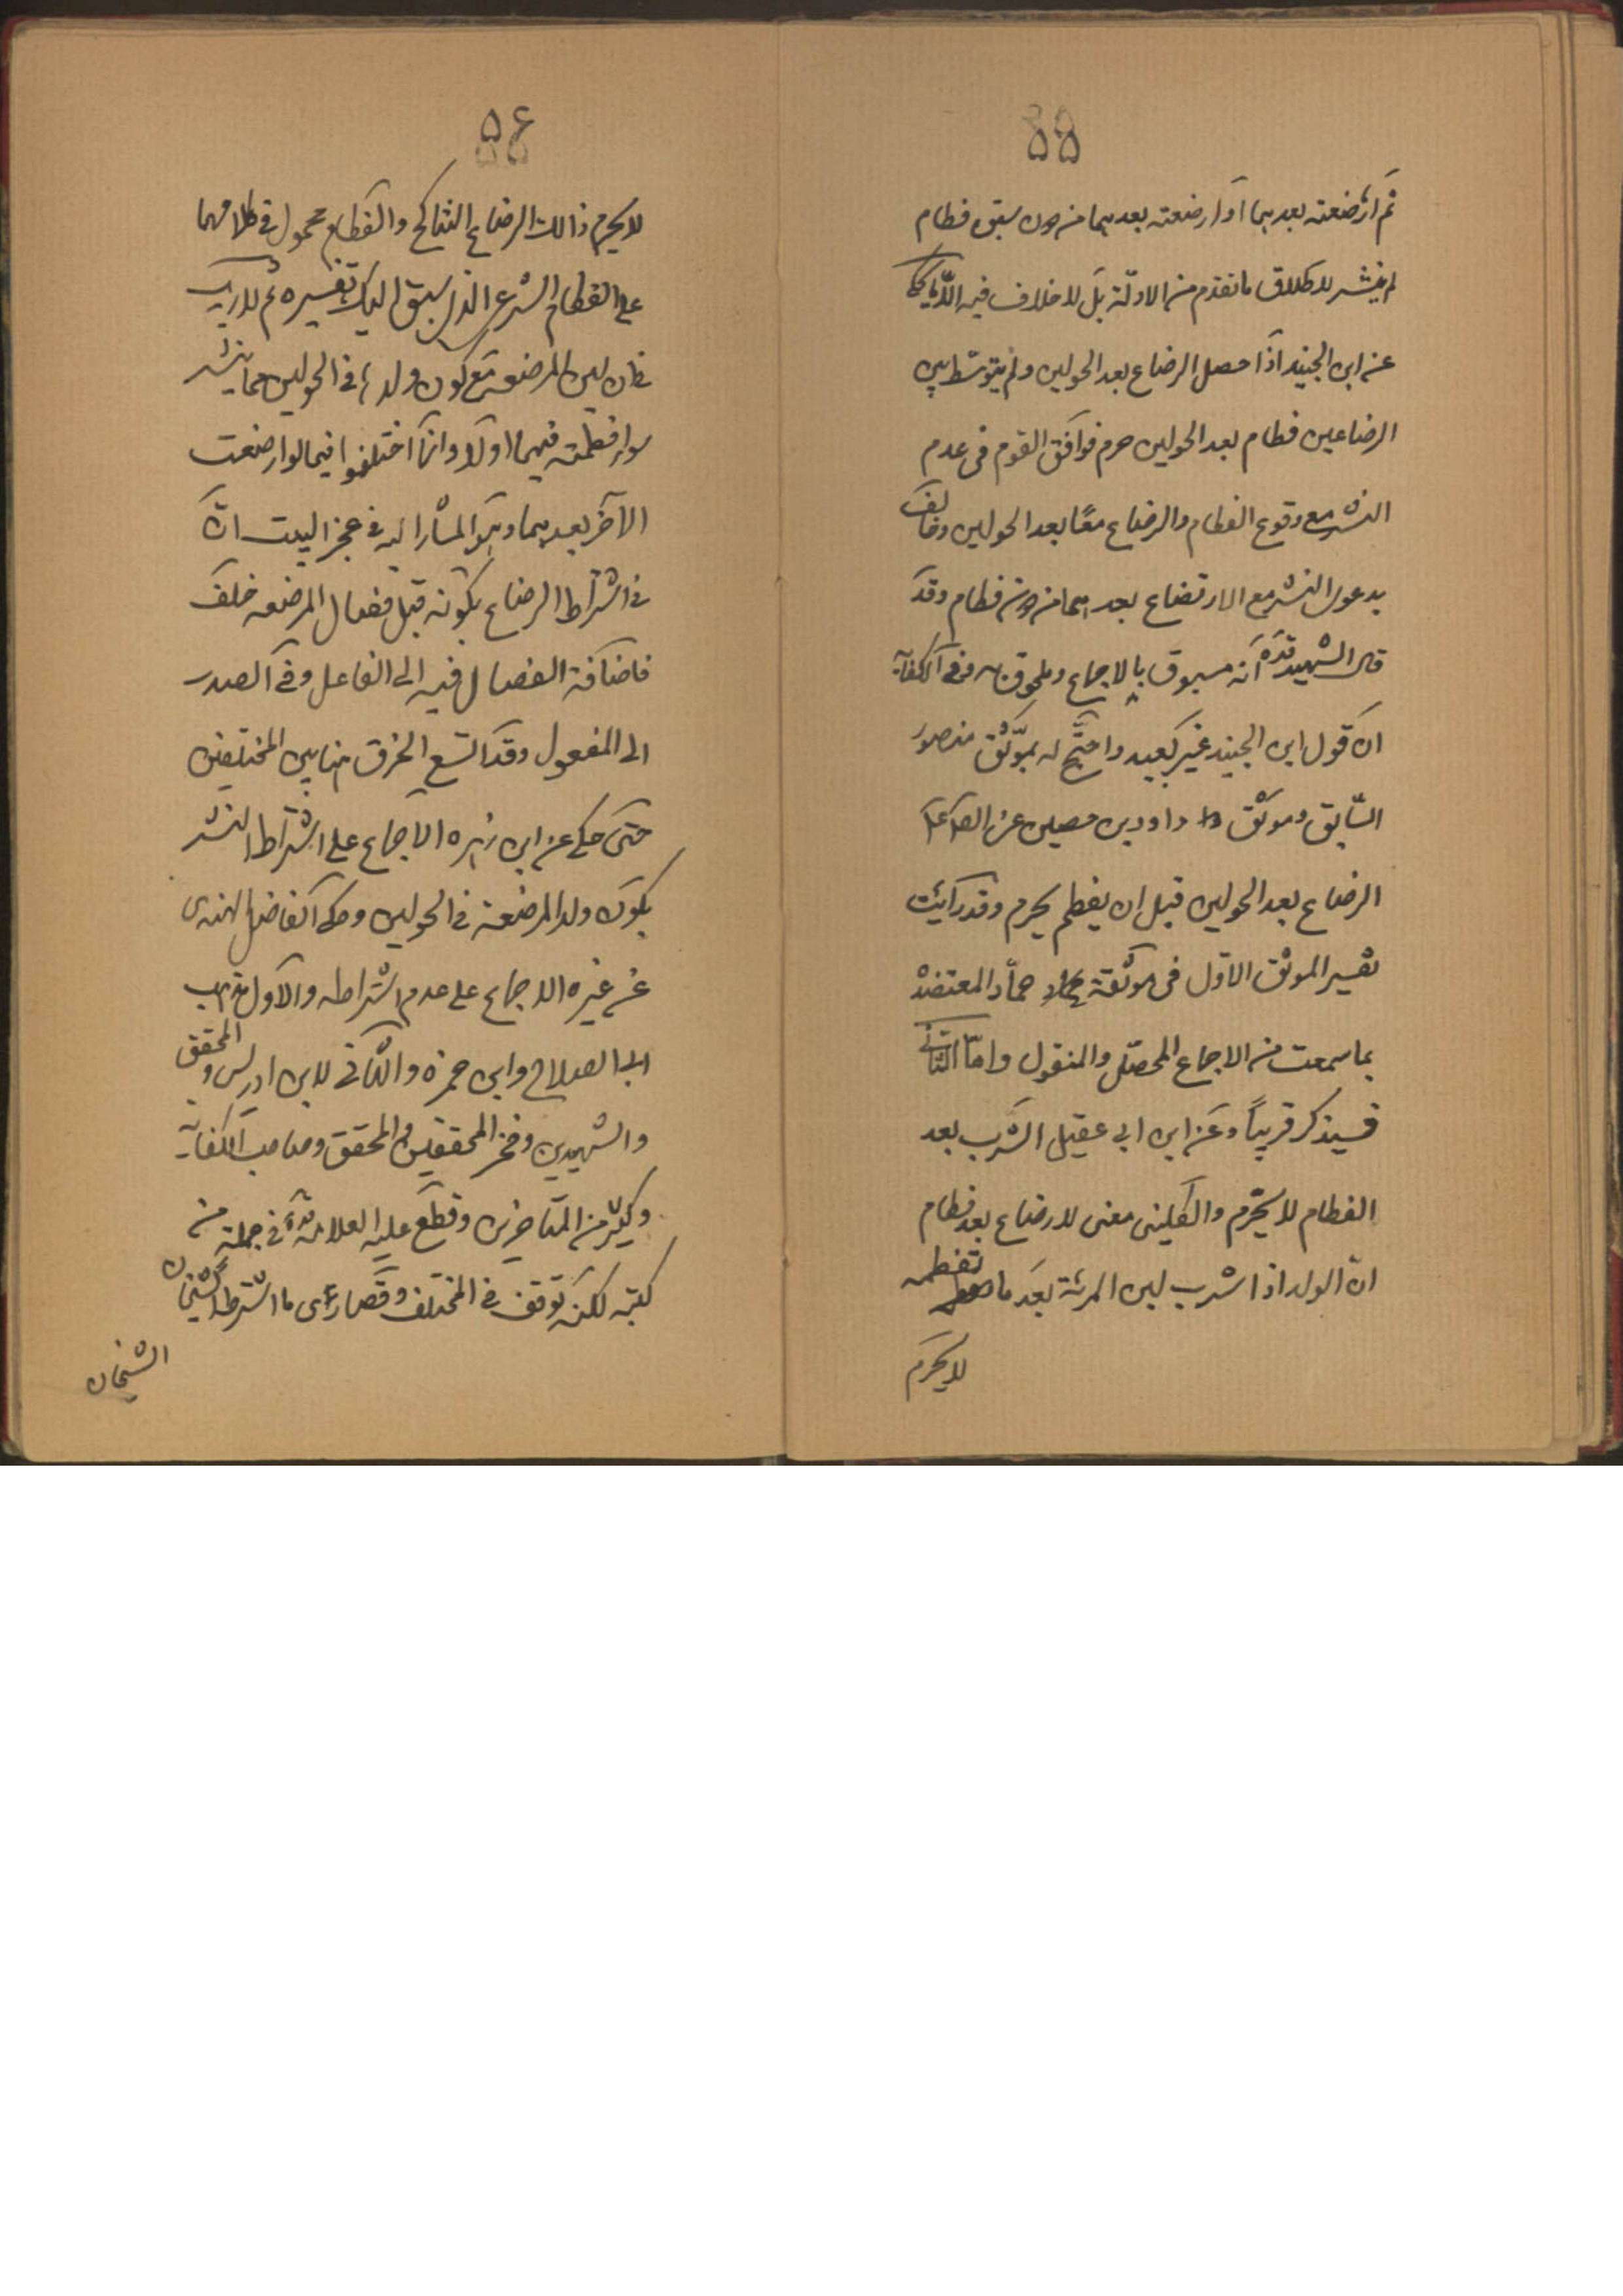 ۵۵
ثم ارضعته بعدهما او ارضعته بعدهما من دون سبق فطام
لم ينشر لاطلاق ما تقدم من الادلة بل لا خلاف فيه الا ما يحكى
عن ابن الجنيد اذا حصل الرضاع بعد الحولين ولم يتوسط بين
الرضاعين فطام بعد الحولين حرم فوافق القوم فى عدم
النشر مع وقوع الفطام والرضاع معًا بعد الحولين وخالف
بدعوى النشر مع الارتضاع بعدهما من دون فطام وقد
قال الشهيد قده انه مسبوق بالاجماع وملحوق به وفى الكفاية
ان قول ابن الجنيد غير بعيد واحتج له بموثق منصور
السّابق وموثق داود بن حصين عن الصادق
الرضاع بعد الحولين قبل ان يفطم يحرم وقد رايت
تفسير الموثق الاوّل فى موثقة حمّاد المعتضد
بما سمعت من الاجماع المحصّل والمنقول وامّا الثانى
فسيذكر قريباً وعن ابن ابى عقيل الشرب بعد
الفطام لا يحرّم والكلينى معنى لا رضاع بعد فطام
انّ الولد اذا شرب لبن المرئة بعد ما تفطمه
لا يحرم
۵۶
لا يحرم ذالك الرضاع التناكح والفطام محمول فى كلامهما
على الفطام الشرعى الذى سبق اليك تفسيره ثم لا ريب
فى ان لبن المرضعة مع كون ولدها فى الحولين مما ينشر
سواء فطمته فيهما اولا وانما اختلفوا فيما لو ارضعت
الآخر بعدهما وهو المشار اليه فى عجز البيت انّ
فى اشتراط الرضاع بكونه قبل فصال المرضعه خلف
فاضافة الفصال فيه الى الفاعل وفى الصدر
الى المفعول وقد اتسع الخرق هنا بين المختلفين
حتى حكى عن ابن زهره الاجماع على اشتراط النشر
بكون ولد المرضعة فى الحولين وحكى الفاضل الهندى
عن غيره الاجماع على عدم اشتراطه والاول مذهب
ابى الصلاح وابن حمزه والثانى لابن ادريس والمحقق
والشهيدين وفخر المحققين والمحقق وصاحب الكفاية
وكثير من المتاخرين وقطع عليه العلامة قده فى جملة من
كتبه لكنه توقف فى المختلف وقصارى ما اشترطه الشيخان
الشيخان